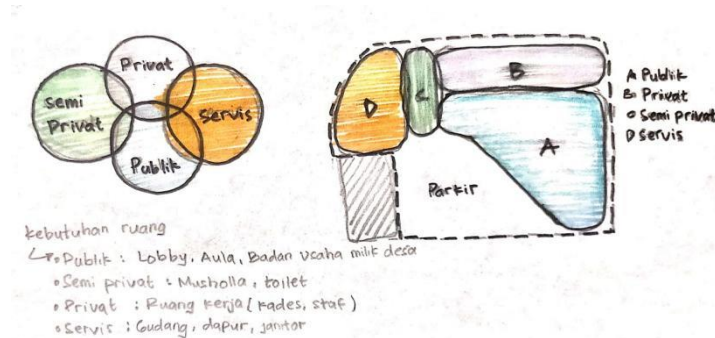 Privat
Semi
Privat
Servis
Publik
D
C
B
A
Parkir
A Publik
B Privat
C Semi privat
D Servis
Kebutuhan ruang
• Publik : Lobby, Aula, Badan usaha milik desa
• Semi privat : Musholla, toilet
• Privat : Ruang kerja (kades, staf)
• Servis : Gudang, dapur, janitor